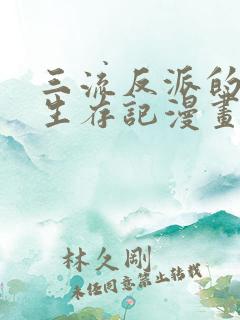 三流反派的
生存記漫畫
林久剛
未经同意禁止转载